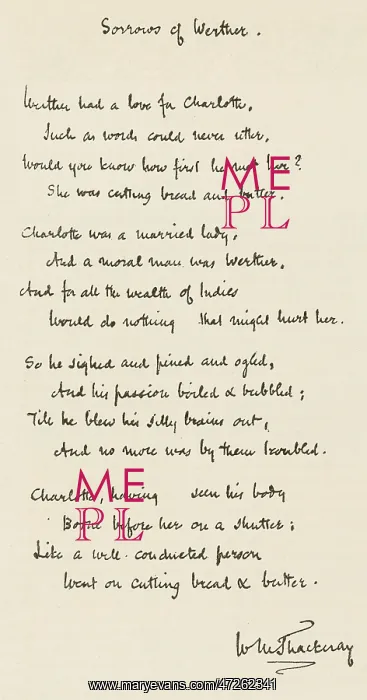 Sorrows of Werther.
Werther had a love for Charlotte,
Such as words could never utter,
Would you know how first he met her?
She was cutting bread and butter.
Charlotte was a married lady,
And a moral man was Werther,
And for all the wealth of Indies
Would do nothing that might hurt her.
So he sighed and pined and ogled,
And his passion boiled & bubbled;
Till he blew his silly brains out,
And no more was by them troubled.
Charlotte, having seen his body
Borne before her on a shutter;
Like a well-conducted person
Went on cutting bread & butter.
WMThackeray
ME
PL
ME
PL
www.maryevans.com/47262341